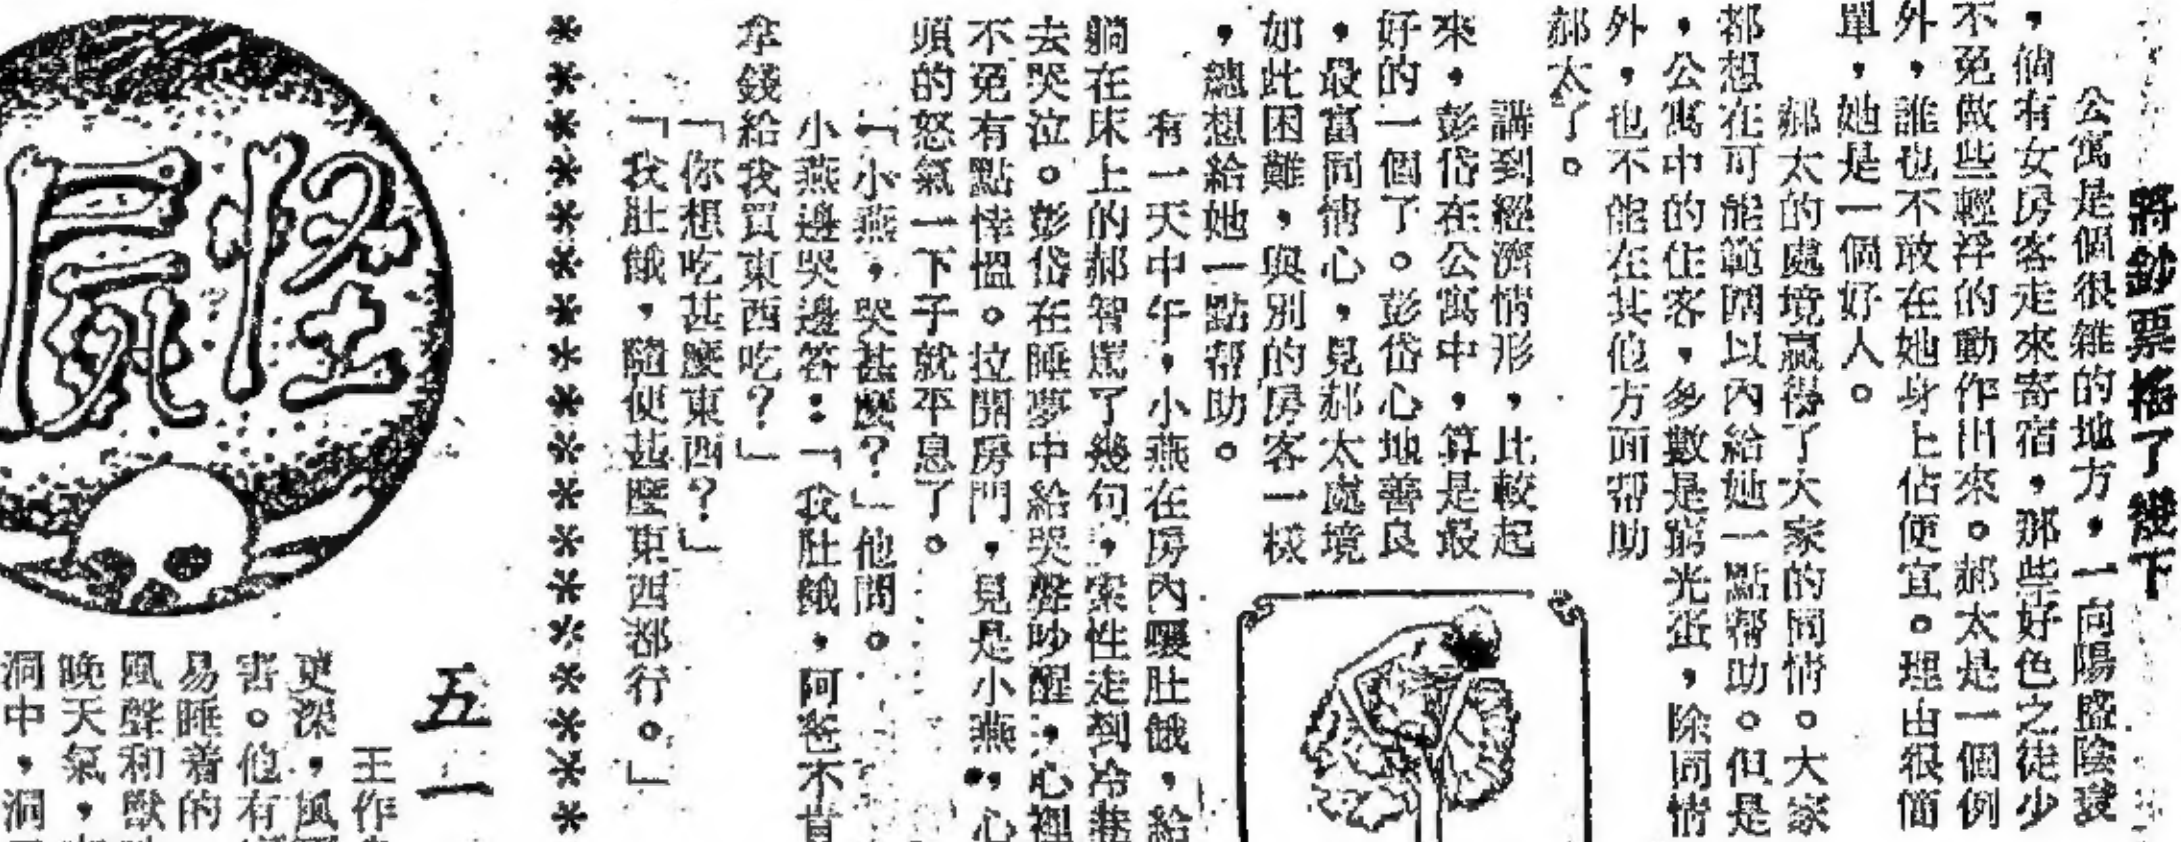 將鈔票搖了幾下
公寓是個很雜的地方，一向陽盛陰衰
，倘有女房客走來寄宿，那些好色之徒少
不免做些輕浮的動作出來。郝太是一個例
外，誰也不敢在她身上佔便宜。理由很簡
單，她是一個好人。
郝太的處境贏得了大家的同情。大家
都想在可能範圍以內給她一點幫助。但是
，公寓中的住客，多數是窮光蛋，除同情
外，也不能在其他方面幫助
郝太了。
講到經濟情形，比較起
來，彭岱在公寓中，算是最
好的一個了。彭岱心地善良
，最富同情心，見郝太處境
如此困難，與別的房客一樣
，總想給她一點幫助。
有一天中午，小燕在房內嚷肚餓，給
躺在床上的郝智罵了幾句，索性走到冷巷
去哭泣。彭岱在睡夢中給哭聲吵醒，心裡
不免有點悻慍。拉開房門，見是小燕，心
頭的怒氣一下子就平息了。
「小燕，哭甚麼？」他問。
小燕邊哭邊答：「我肚餓，阿爸不肯
拿錢給我買東西吃？」
「你想吃甚麼東西？」
「我肚餓，隨便甚麼東西都行。」
＊＊＊＊＊＊＊＊＊＊＊＊＊＊＊
怪屍
五一
王作
更深，風
害。他有
易睡着的
風聲和獸
晚天氣，
洞中，洞